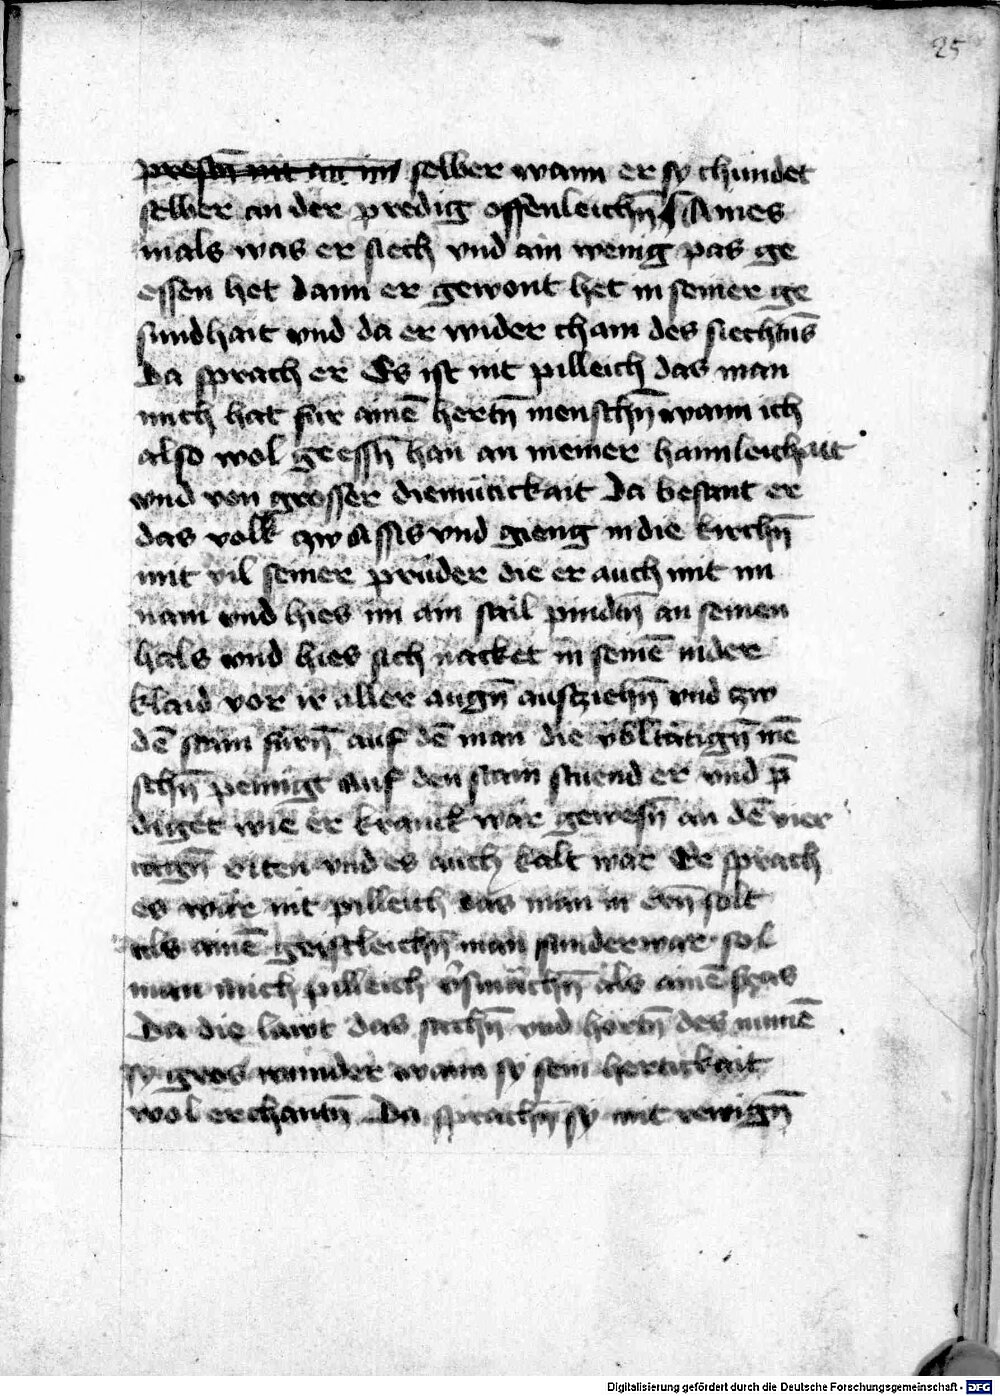 25
prestn̄ nit an im selber wann er sy chundet
selber an der predig offenleichn̄ Aines
mals was er siech vnd ain wenig pas ge
essen het dann er gewont het in seiner ge
sundhait vnd da er wider cham des siechtūs
Da sprach er Es ist nit pilleich das man
mich hat fur ainē hertn̄ menschn̄ wann ich
also wol geessn̄ han an meiner haimleichait
vnd von grosser diemütickait Da besant er
das volk zw Assis vnd gieng in die kirchn̄
mit vil seiner prüder die er auch mit im
nam vnd hies im ain sail pindn̄ an seinen
hals vnd hies sich nacket in seinē nider
klaid vor ir aller augn̄ ausziehn̄ vnd zw
dē stain fürn̄ auf dē man die vbltätign̄ mē
schn̄ peinigt Auf den stain stuend er vnd p̄
diget wie er kranck wär gewesn̄ an dē vier
tägn̄ riten vnd es auch kalt was Er sprach
es wär nit pilleich das man in ern̄ solt
als ainē geistleichn̄ man sunder war sol
man mich pilleich v̄smächn̄ als ainē
Da die läwt das sachn̄ vnd hortn̄ des namē
sy gros wunder wann sy sein hertickait
wol erchantn̄ Da sprachn̄ sy mit rewign̄
Digitalisierung gefördert durch die Deutsche Forschungsgemeinschaft - DFG